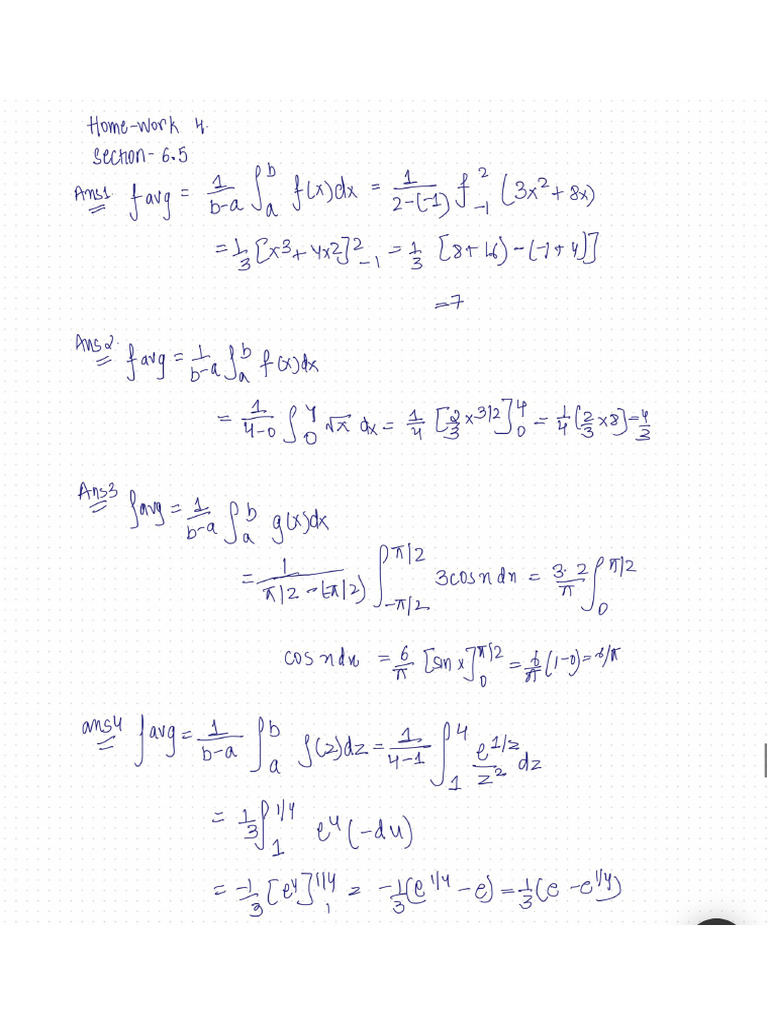 Home-work 4.
Section - 6.5
Ans1. f avg = 1/(b-a) ∫_a^b f(x)dx = 1/(2-(-1)) ∫_{-1}^2 (3x² + 8x)
= 1/3 [x3 + 4x2]^2_{-1} = 1/3 [8+16) - (-1+4)]
= 7
Ans2. f avg = 1/(b-a) ∫_a^b f(x)dx
= 1/(4-0) ∫_0^4 √x dx = 1/4 [2/3 x^{3/2}]_0^4 = 1/4 [2/3 × 8] = 4/3
Ans3 f avg = 1/(b-a) ∫_a^b g(x)dx
= 1/(π/2 - (-π/2)) ∫_{-π/2}^{π/2} 3cosx dx = 3·2/π ∫_0^{π/2}
cos x dx = 6/π [sin x]_0^{π/2} = 6/π (1-0) = 6/π
ans4 f avg = 1/(b-a) ∫_a^b f(z)dz = 1/(4-1) ∫_1^4 e^{1/z}/z² dz
= 1/3 ∫_1^{1/4} e^u (-du)
= -1/3 [e^u]_1^{1/4} = -1/3 (e^{1/4} - e) = 1/3 (e - e^{1/4})